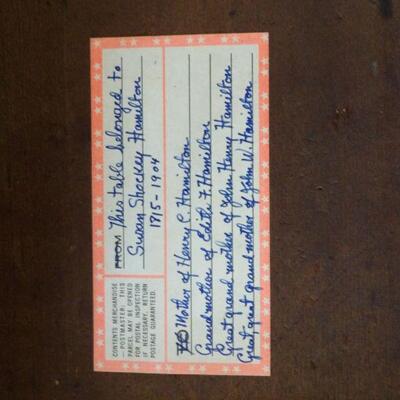 FROM This table belonged to
Susan Shockey Hamilton
1815-1904
CONTENTS MERCHANDISE
— POSTMASTER: THIS
PARCEL MAY BE OPENED
FOR POSTAL INSPECTION
IF NECESSARY. RETURN
POSTAGE GUARANTEED.
TO Mother of Henry C. Hamilton
Grandmother of Edith F. Hamilton
Great grand mother of John Henry Hamilton
Great great grand mother of John W. Hamilton